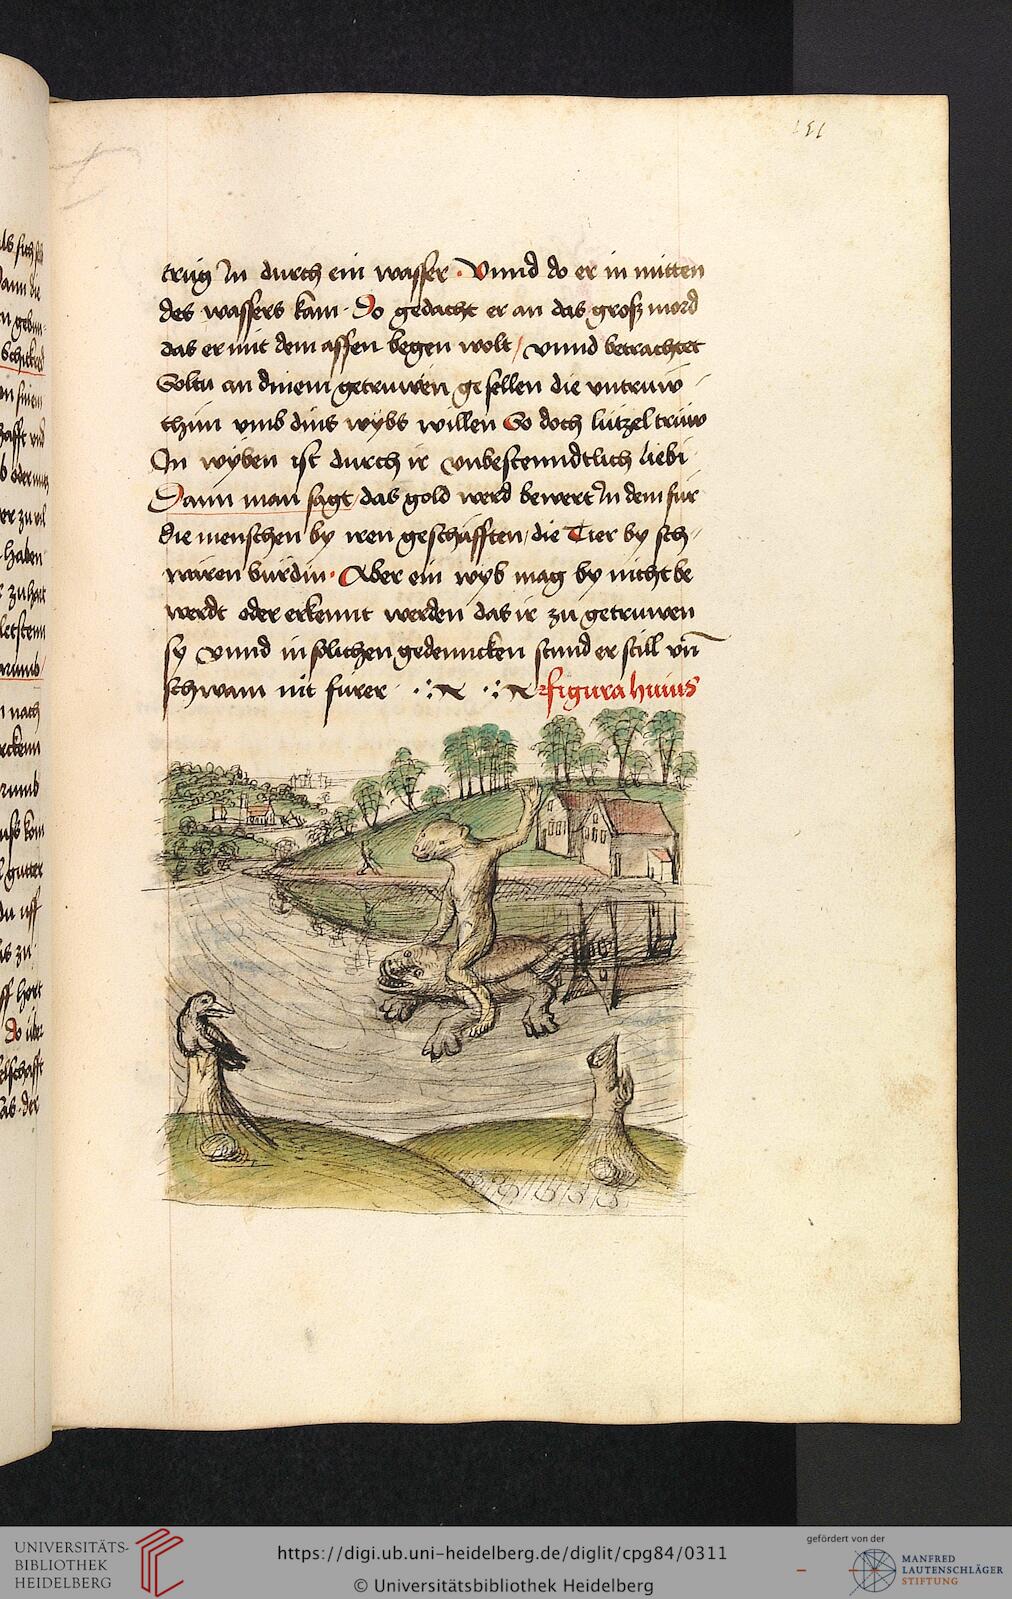 151
trůg In durch ein wasser · Vnnd do er in mitten
des wassers kam · Do gedacht er an das groß mord
das er mit dem affen begen wolt / vnnd betrachtet
Soltu an dinem getruwen gesellen die vntruw
thun vmb dins wybs willen So doch lützel trüw
In wyben ist durch ir vnbestenndtlich liebi
Dann man sagt / das gold werd bewert In dem für
die menschen by iren geschäfften / die Tier by sch-
wären burdin · Aber ein wyb mag by nicht be
werdt oder erkennt werden das ir zu getruwen
sy Vnnd in sölichen gedenncken stund er still vn̄
schwam nit fürer figura huius
UNIVERSITÄTS-
BIBLIOTHEK
HEIDELBERG
https://digi.ub.uni-heidelberg.de/diglit/cpg84/0311
© Universitätsbibliothek Heidelberg
gefördert von der
MANFRED
LAUTENSCHLÄGER
STIFTUNG